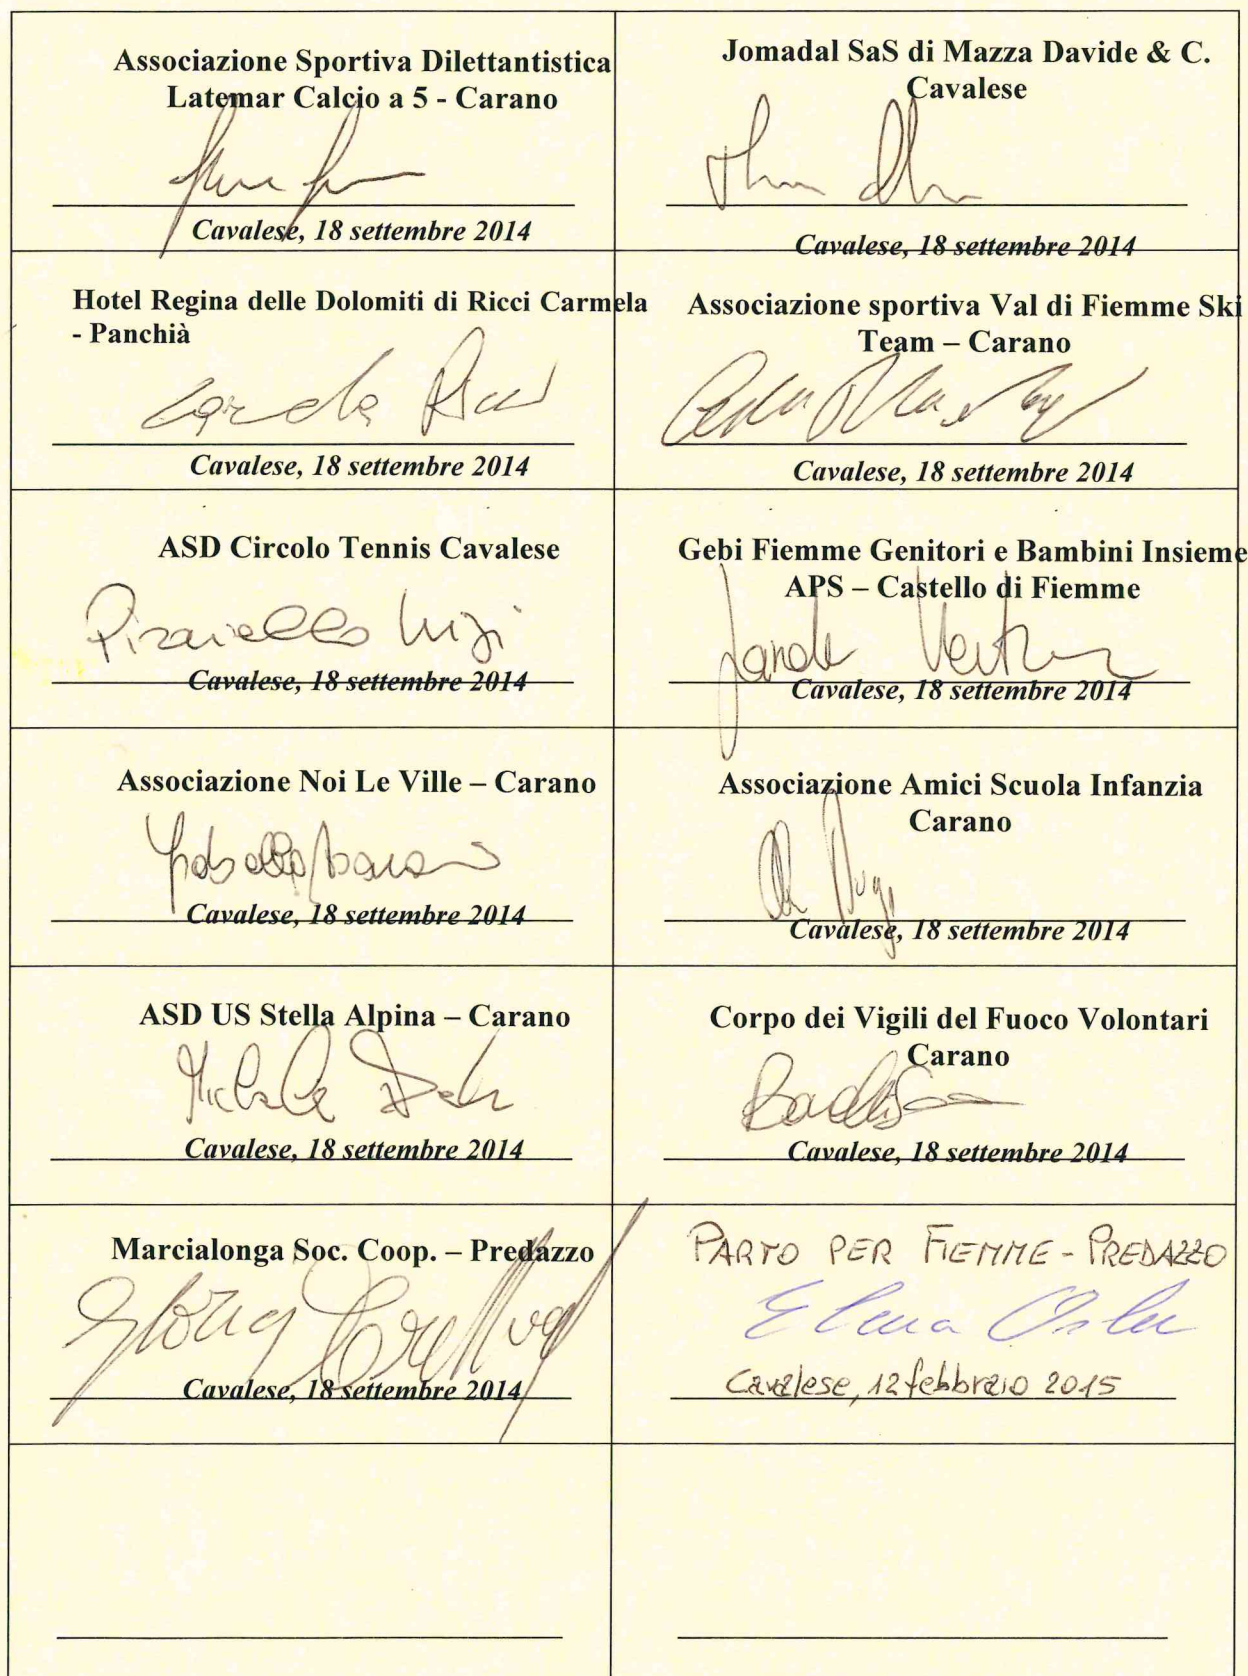 Associazione Sportiva Dilettantistica
Latemar Calcio a 5 - Carano
Cavalese, 18 settembre 2014
Jomadal SaS di Mazza Davide & C.
Cavalese
Cavalese, 18 settembre 2014
Hotel Regina delle Dolomiti di Ricci Carmela
- Panchià
Ricci
Cavalese, 18 settembre 2014
Associazione sportiva Val di Fiemme Ski
Team – Carano
Cavalese, 18 settembre 2014
ASD Circolo Tennis Cavalese
Cavalese, 18 settembre 2014
Gebi Fiemme Genitori e Bambini Insieme
APS – Castello di Fiemme
Cavalese, 18 settembre 2014
Associazione Noi Le Ville – Carano
Cavalese, 18 settembre 2014
Associazione Amici Scuola Infanzia
Carano
Cavalese, 18 settembre 2014
ASD US Stella Alpina – Carano
Cavalese, 18 settembre 2014
Corpo dei Vigili del Fuoco Volontari
Carano
Cavalese, 18 settembre 2014
Marcialonga Soc. Coop. – Predazzo
Cavalese, 18 settembre 2014
PARTO PER FIEMME - PREDAZZO
Elena
Cavalese, 12 febbraio 2015